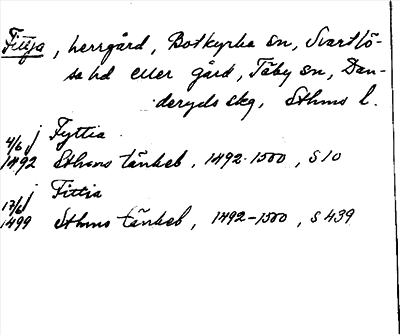 Fittja, herrgård, Botkyrka sn, Svartlö-
sa hd eller gård, Täby sn, Dan-
deryds skg, Sthms l.
4/6 j Fyttia
1492 Sthms tänkeb, 1492-1500, S 10
17/6 j Fittia
1499 Sthms tänkeb, 1492-1500, S 439